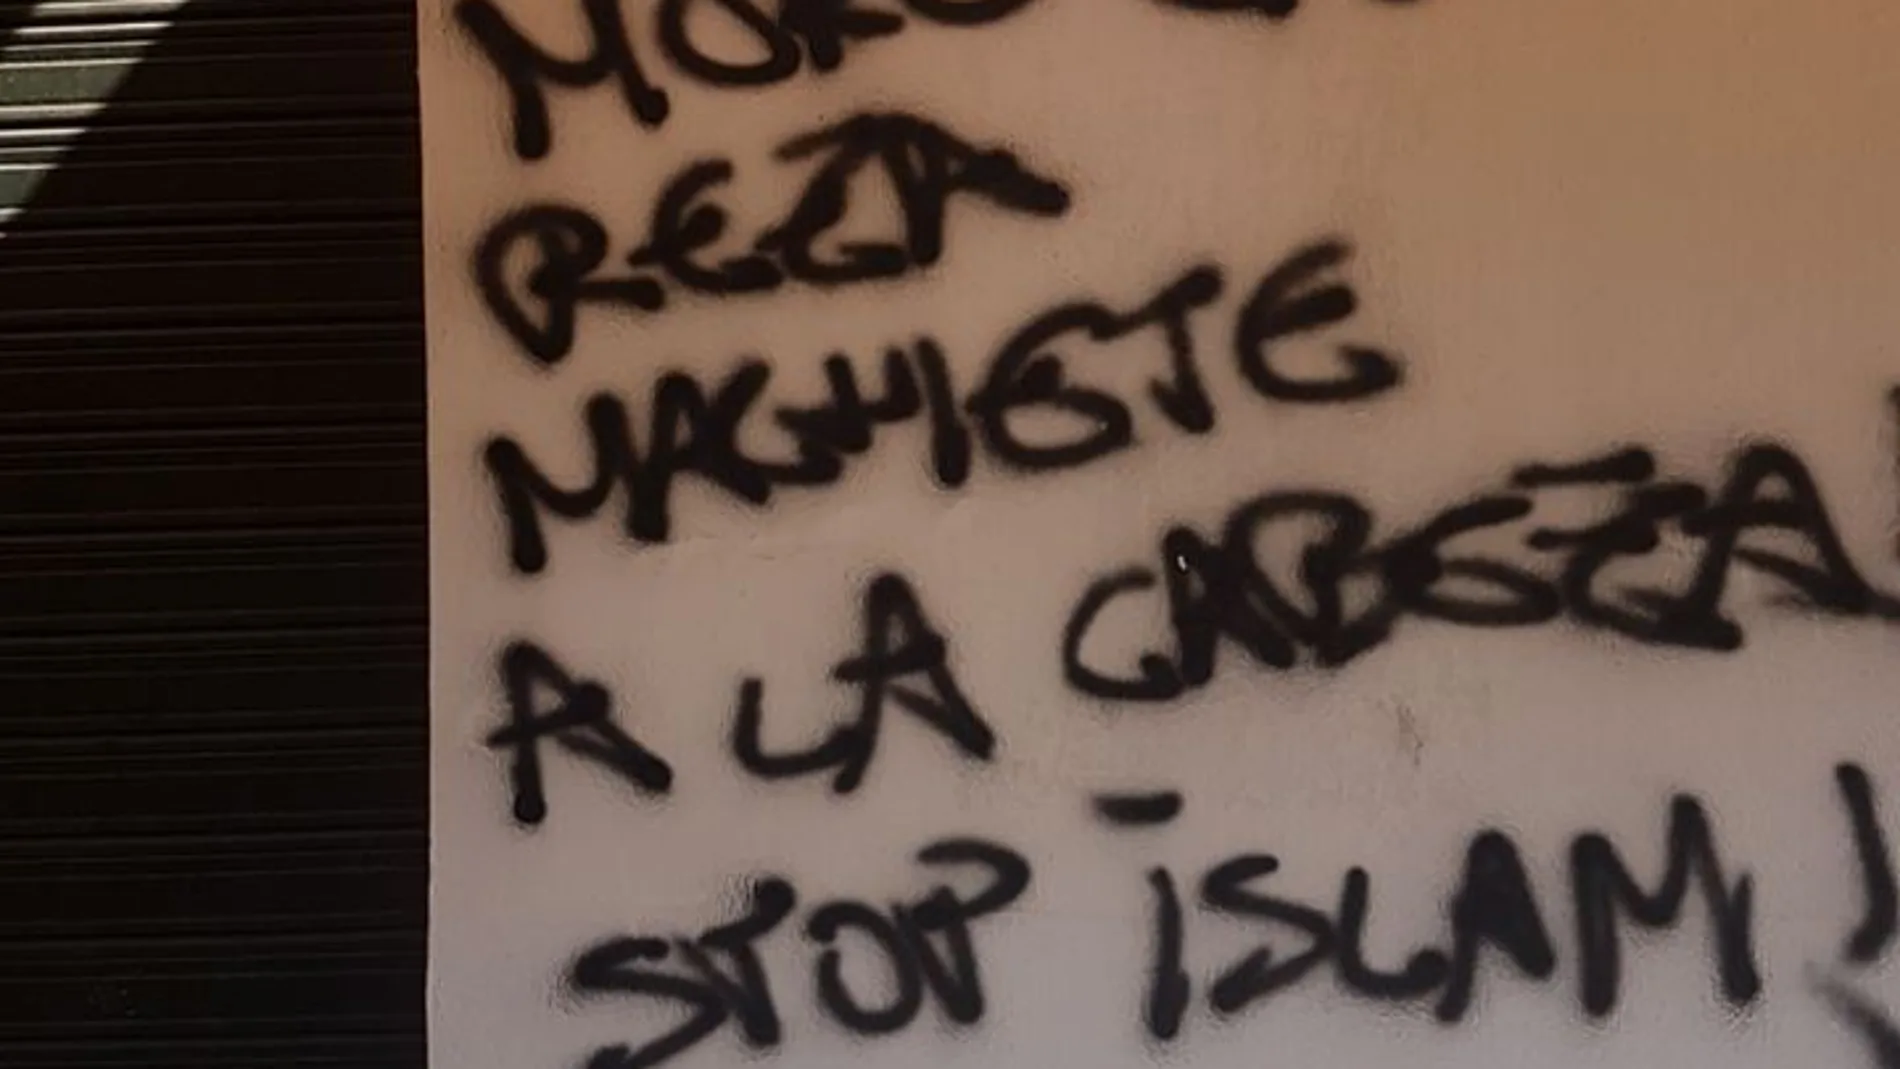 REZA
MACHETE
A LA CABEZA!
STOP ISLAM!